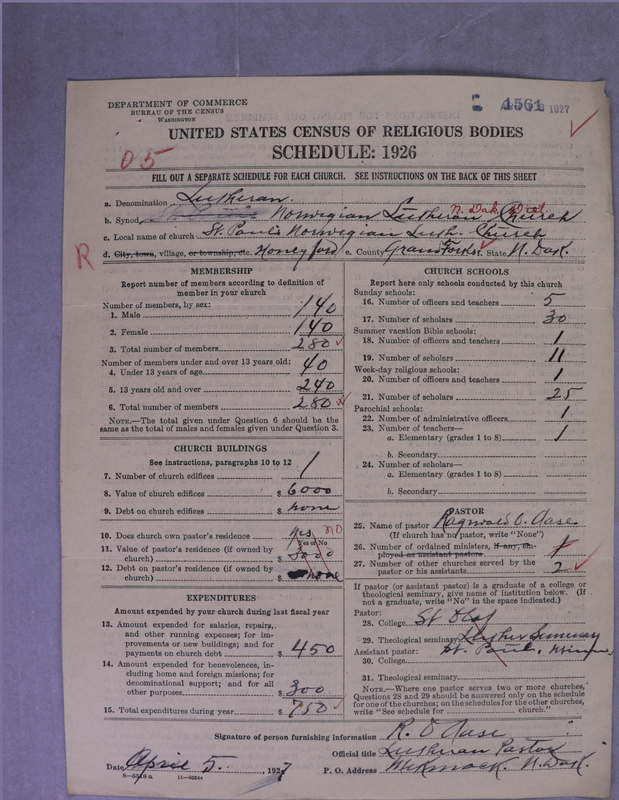 DEPARTMENT OF COMMERCE
BUREAU OF THE CENSUS
WASHINGTON
1561
1927
UNITED STATES CENSUS OF RELIGIOUS BODIES
SCHEDULE: 1926
05
FILL OUT A SEPARATE SCHEDULE FOR EACH CHURCH. SEE INSTRUCTIONS ON THE BACK OF THIS SHEET
a. Denomination Lutheran.
N. Dak. Dist.
b. Synod Norwigian Lutheran Church
c. Local name of church St. Paul's Norwigian Luth. Church
R
d. City, town, village, or township, etc. Honeyford e. County Grand Forks f. State N. Dak.
MEMBERSHIP
Report number of members according to definition of
member in your church
Number of members, by sex:
1. Male 140
2. Female 140
3. Total number of members 280
Number of members under and over 13 years old:
4. Under 13 years of age 40
5. 13 years old and over 240
6. Total number of members 280
NOTE.—The total given under Question 6 should be the
same as the total of males and females given under Question 3.
CHURCH BUILDINGS
See instructions, paragraphs 10 to 12
7. Number of church edifices 1
8. Value of church edifices $ 6000
9. Debt on church edifices $ none
10. Does church own pastor's residence yes no
Yes or No
11. Value of pastor's residence (if owned by
church) $ 3000
12. Debt on pastor's residence (if owned by
church) $ none
EXPENDITURES
Amount expended by your church during last fiscal year
13. Amount expended for salaries, repairs,
and other running expenses; for im-
provements or new buildings; and for
payments on church debt $ 450
14. Amount expended for benevolences, in-
cluding home and foreign missions; for
denominational support; and for all
other purposes $ 300
15. Total expenditures during year $ 750
CHURCH SCHOOLS
Report here only schools conducted by this church
Sunday schools:
16. Number of officers and teachers 5
17. Number of scholars 30
Summer vacation Bible schools:
18. Number of officers and teachers 1
19. Number of scholars 11
Week-day religious schools:
20. Number of officers and teachers 1
21. Number of scholars 25
Parochial schools:
22. Number of administrative officers 1
23. Number of teachers—
a. Elementary (grades 1 to 8) 1
b. Secondary
24. Number of scholars—
a. Elementary (grades 1 to 8)
b. Secondary
PASTOR
25. Name of pastor Ragnvald O. Aase
(If church has no pastor, write "None")
26. Number of ordained ministers, if any, em-
ployed as assistant pastors 1
27. Number of other churches served by the
pastor or his assistants 2
If pastor (or assistant pastor) is a graduate of a college or
theological seminary, give name of institution below. (If
not a graduate, write "No" in the space indicated.)
Pastor:
28. College St Olaf
29. Theological seminary Luther Seminary
Assistant pastor: St. Paul, Minn
30. College
31. Theological seminary
NOTE.—Where one pastor serves two or more churches,
Questions 28 and 29 should be answered only on the schedule
for one of the churches; on the schedules for the other churches,
write "See schedule for church."
Signature of person furnishing information R. O Aase
Official title Lutheran Pastor
Date April 5. , 1927 P. O. Address N. Dak.